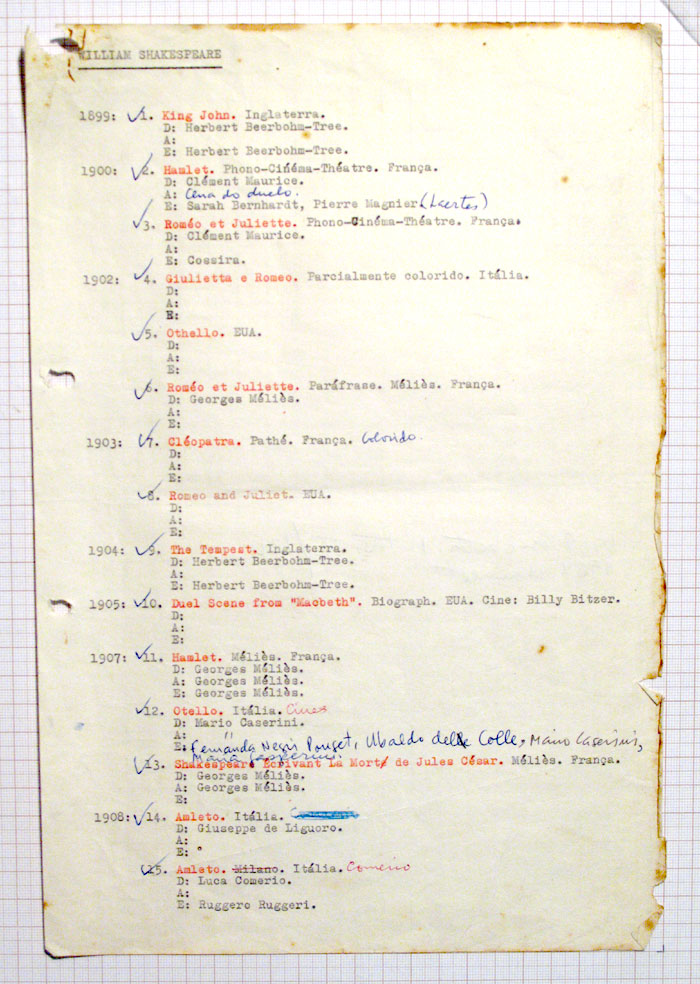 WILLIAM SHAKESPEARE
1899: 1. King John. Inglaterra.
D: Herbert Beerbohm-Tree.
A:
E: Herbert Beerbohm-Tree.
1900: 2. Hamlet. Phono-Cinéma-Théatre. França.
D: Clément Maurice.
A: Cena do duelo.
E: Sarah Bernhardt, Pierre Magnier (Laertes)
3. Roméo et Juliette. Phono-Cinéma-Théatre. França.
D: Clément Maurice.
A:
E: Cossira.
1902: 4. Giulietta e Romeo. Parcialmente colorido. Itália.
D:
A:
E:
5. Othello. EUA.
D:
A:
E:
6. Roméo et Juliette. Paráfrase. Méliès. França.
D: Georges Méliès.
A:
E:
1903: 7. Cléopatra. Pathé. França. Colorido.
D:
A:
E:
8. Romeo and Juliet. EUA.
D:
A:
E:
1904: 9. The Tempest. Inglaterra.
D: Herbert Beerbohm-Tree.
A:
E: Herbert Beerbohm-Tree.
1905: 10. Duel Scene from "Macbeth". Biograph. EUA. Cine: Billy Bitzer.
D:
A:
E:
1907: 11. Hamlet. Méliès. França.
D: Georges Méliès.
A: Georges Méliès.
E: Georges Méliès.
12. Otello. Itália. Cines
D: Mario Caserini.
A:
E: Fernanda Negri Pouget, Ubaldo delle Colle, Mario Caserini,
Maria Gasperini.
13. Shakespeare Ecrivant La Mort de Jules César. Méliès. França.
D: Georges Méliès.
A: Georges Méliès.
E:
1908: 14. Amleto. Itália.
D: Giuseppe de Liguoro.
A:
E:
15. Amleto. Milano. Itália. Comerio
D: Luca Comerio.
A:
E: Ruggero Ruggeri.